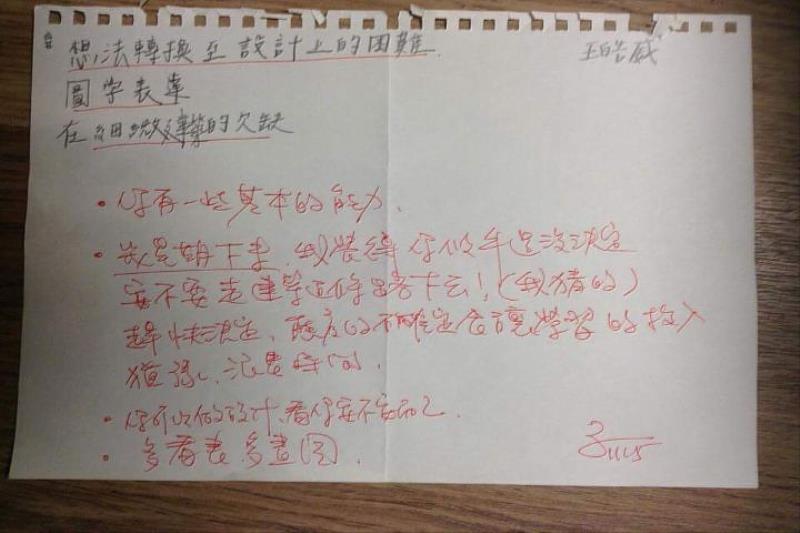 想法轉換至設計上的困難. 王皓威
圖学表達
在細微建築的欠缺
• 你有一些基本的能力.
• 幾星期下來,我覺得你似乎還沒決定
要不要走建築這條路下去!(我猜的)
趕快決定、態度的不確定会讓學習的投入
猶豫、浪費時間.
• 你可以做設計,看你要不要而已.
• 多看書,多畫圖.